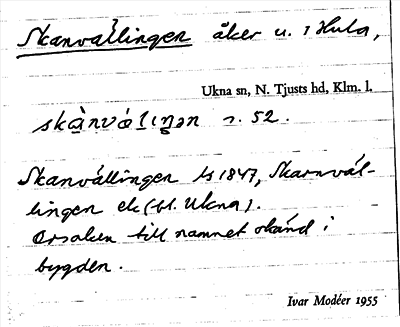 Skanvällingen åker u. 1 Hula,
Ukna sn, N. Tjusts hd, Klm. l.
skà̱nvá̱lıŋən r. 52.
Skanvällingen ls 1847, Skarnväl-
lingen ek (bl. Ukna).
Orsaken till namnet okänd i
bygden.
Ivar Modéer 1955